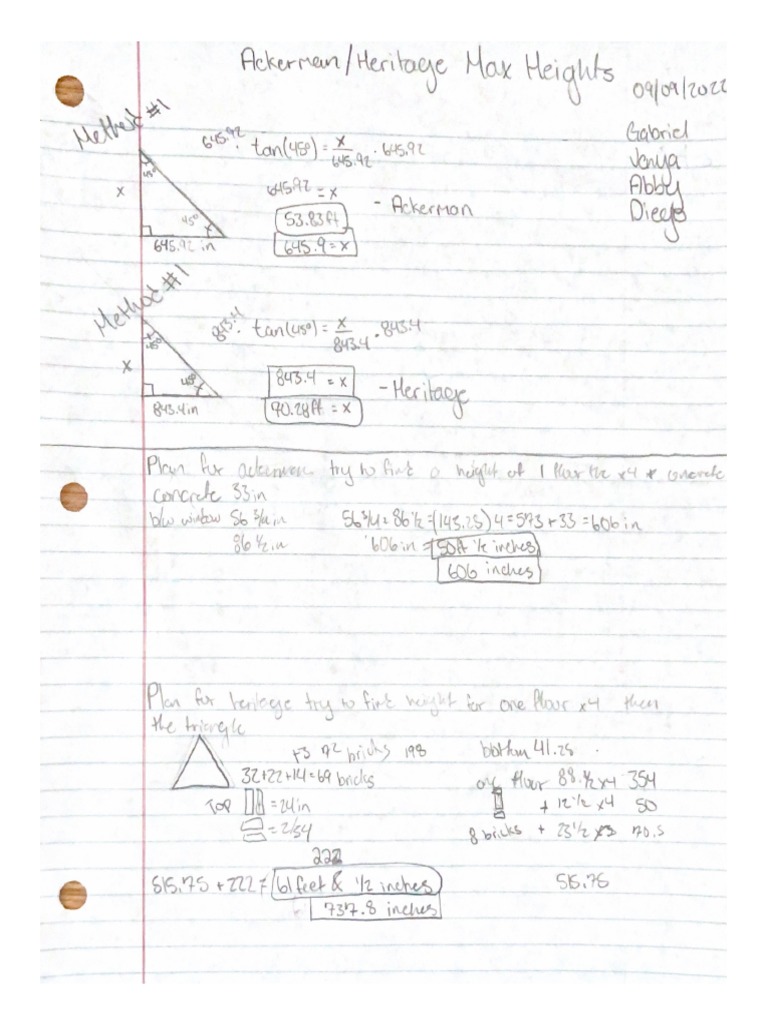 Ackerman/Heritage Max Heights
09/09/2022
Gabriel
Abby
Diego
Method #1
645.92 · tan(45°) = x/645.92 · 645.92
x
45°
45°
x
645.92 in
645.92 = x
53.83 ft
645.9 = x
- Ackerman
Method #1
843.4 · tan(45°) = x/843.4 · 843.4
x
45°
45°
x
843.4 in
843.4 = x
70.28 ft = x
- Heritage
Plan for ackerman try to find a height of 1 floor x4 + concrete
concrete 33 in
b/w window 56 3/4 in
86 1/2 in
56 3/4 + 86 1/2 = (143.25) 4 = 573 + 33 = 606 in
606 in = 50ft 1/2 inches
606 inches
Plan for heritage try to find height for one floor x4 then
the triangle
+3 72 bricks 198
32+22+14=69 bricks
TOP = 24 in
= 2/54
222
bottom 41.25
floor 88.1/2 x4 354
+ 12 1/2 x4 50
8 bricks + 23 1/2 x3 70.5
515.75
515.75 + 222 = 61 feet & 1/2 inches
737.8 inches